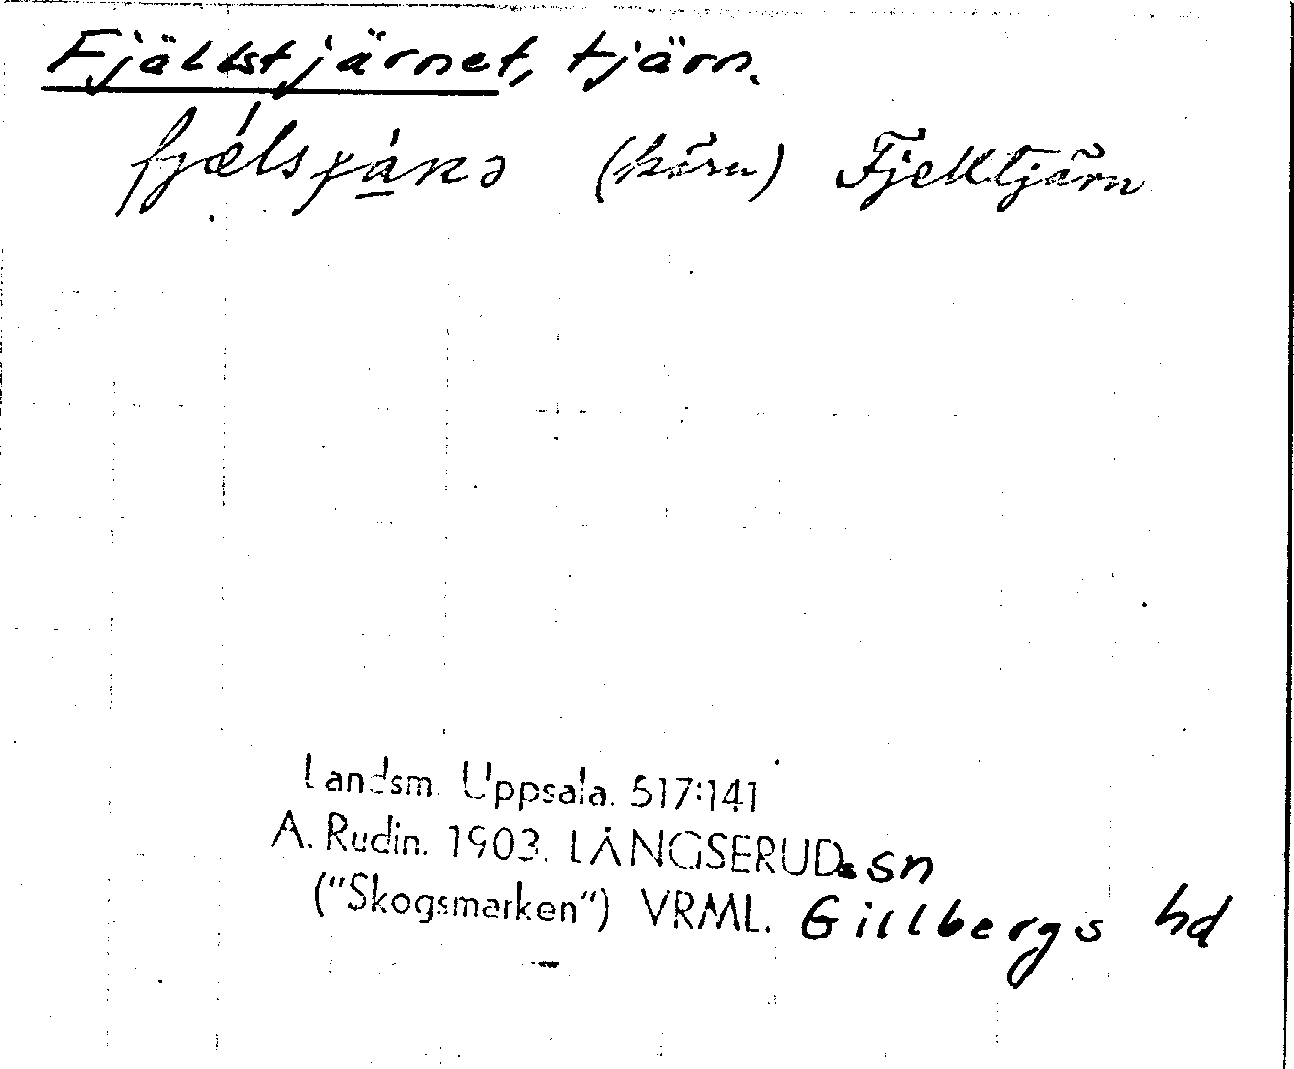 Fjällstjärnet, tjärn.
fjælsʃánə (kärn) Fjelltjärn
Landsm. Uppsala. 517:141
A. Rudin. 1903. LÅNGSERUDs sn
("Skogsmarken") VRML. Gillbergs hd